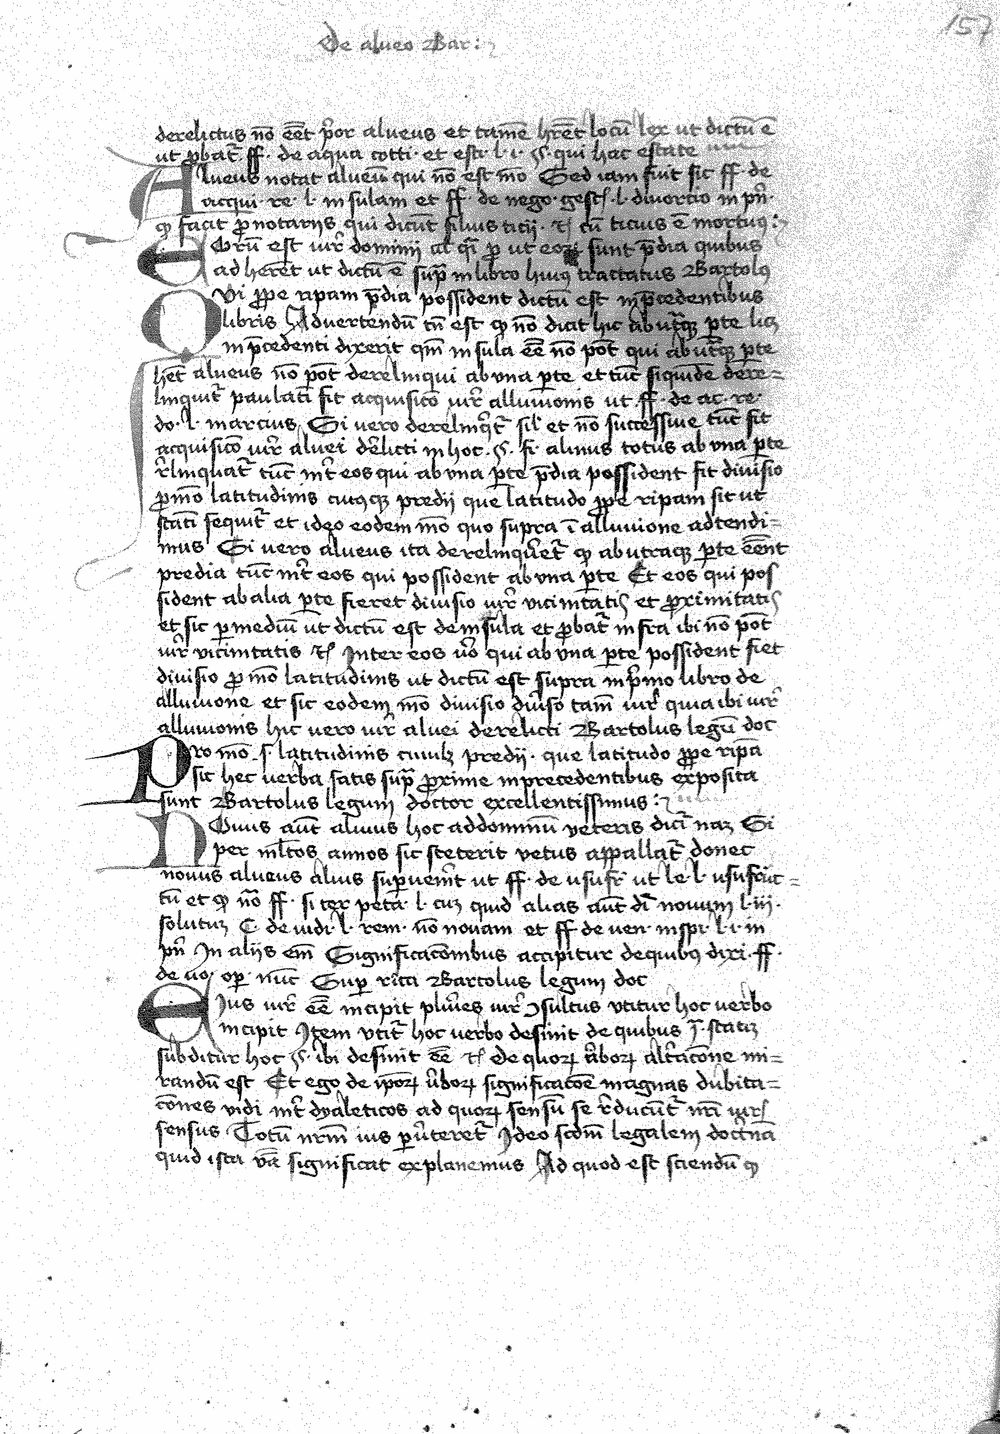 De alueo Bar:
157
derelictus nō eēt p̄or alueus et tamē hr̄et locū lex ut dictū ē
ut ꝓbat᷑ ff. de aqua cotti. et esti. l. i. §. qui hac estate
Alueus notat alueū qui nō est mō Sed iam fuit sic ff. de
acqui. re. l. in sulam et ff. de nego. gest. l. diuorcio in pn̄.
ꝙ facit ꝓ notariis qui dicūt siluis ticii. ⁊c̄ cū ticius ē mortuꝰ:
Eorū est iur̄ dominij al' q̄ ꝑ ut eoꝝ sunt p̄dia quibus
ad herēt ut dictū ē sup̄ in libro huiꝰ tractatus Bartolꝰ
Qui ꝓpe ripam p̄dia possident dictū est in p̄cedentibus
libris Aduertendū tn̄ est ꝙ nō dicit hic ab utaꝗ ꝑte licꝫ
in p̄cedenti dixerit qm̄ insula eē nō pōt qui ab utaꝗ ꝑte
het alueus nō pōt derelinqui ab vna ꝑte et tūc siquidē dere=
linquit᷑ paulatī fit acquisicō iur̄ alluuionis ut ff. de ac. re.
do. l. marcius Si vero derelinq̄t᷑ sil' et nō successiue tūc fit
acquisicō iur̄ aluei der̄licti in hoc. §. si. aluius totus ab vna ꝑte
r̄linquat᷑ tūc int̄ eos qui ab vna ꝑte p̄dia possident fit diuisio
ꝓ mō latitudinis cuiꝰqꝫ predij que latitudo ꝓpe ripam sit ut
statī sequit᷑ et ideo eodem mō quo supra ī alluuione ad tendi=
mus Si vero alueus ita derelinquēt᷑ ꝙ ab utraqꝫ ꝑte eēnt
predia tūc int̄ eos qui possident ab vna ꝑte Et eos qui pos
sident ab alia ꝑte fieret diuisio iur̄ vicinitatis et ꝓximitatis
et sic ꝑ mediū ut dictū est de insula et ꝓbat᷑ infra ibi nō pōt
iur̄ vicinitatis ⁊c̄ Inter eos v̄o qui ab vna ꝑte possident fiet
diuisio ꝓ mō latitudinis ut dictū est supra in p̄mo libro de
alluuione et sic eodem mō diuisio diu̓so tam̄ iur̄ quia ibi iur̄
alluuionis hic vero iur̄ aluei derelicti Bartolus legū doc
Pro mō. s. latitudinis cuiusꝫ predij. que latitudo ꝓpe ripā
sic hec verba satis sup̄ ꝓxime in precedentibus exposita
sunt Bartolus legum doctor excellentissimus:
Nouus aūt aluius hoc ad dominū veteris dicī naꝫ Si
per ml̄tos annos sic steterit vetus appallat᷑ donec
nouus alueus alius suꝑuenīt ut ff. de usufr̄ ut le. l. usufruc=
tū et ꝙ nō ff. si ter petā. l. cuꝫ quid alias aūt dī nouum l. iii.
solutuꝫ C. de iudi. l. rem. nō nouam et ff de ven. inspi. l. i. in
pn̄ In aliis em̄ Significacōnibus accipitur de quibꝰ dixi. ff.
de no. oꝑ. nūc Suꝑ rīca Bartolus legum doc
Eius iur̄ eē incipit plures iur̄ ɔsultus vtitur hoc verbo
incipit Item vtit᷑ hoc verbo desinit de quibus J. statiꝫ
subditur hoc §. ibi desinit eē ⁊c̄ de quoꝝ v̓boꝝ alt̓cacōne mi=
randū est Et ego de ip̄oꝝ v̓boꝝ significacōe magnas dubita=
cōnes vidi int̄ dyaleticos ad quoꝝ sensū se r̄ducūt᷑ nr̄i iur̄
sensus Totū nr̄m ius ꝑu̓teret᷑ Ideo scdm̄ legalem doct̓nā
quid ista v̄a significat explanemus Ad quod est sciendū ꝙ